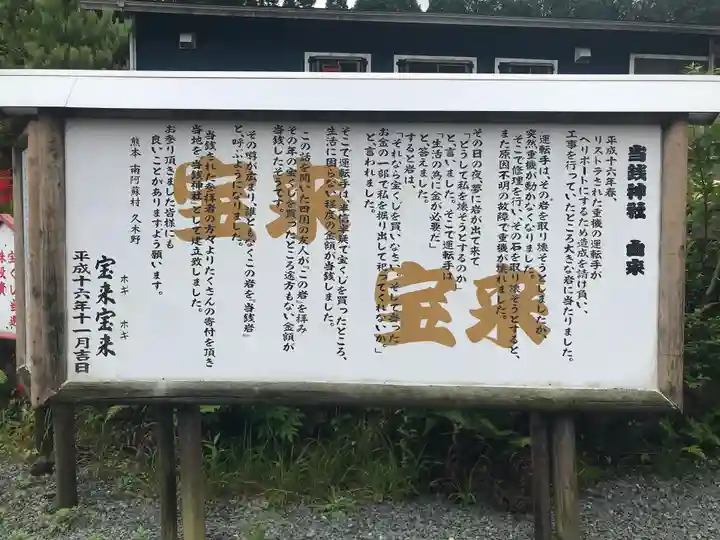 当銭神社 由来
平成十六年春、
リストラされた重機の運転手が
ヘリポートにするため造成を請け負い、
工事を行っていたところ大きな岩に当たりました。
運転手は、その岩を取り壊そうとしましたが、
突然重機が動かなくなりました。
そこで修理を行い、その石を取り壊そうとすると、
また原因不明の故障で重機が壊れました。
その日の夜、夢に岩が出て来て
「どうして私を壊そうとするのか」
と、言いました。そこで運転手は、
「生活の為に金が必要だ」
と、答えました。
すると岩は、
「それなら宝くじを買いなさい。そして当った
お金の一部で私を掘り出して祀ってくれないか。」
と、言われました。
そこで運転手は、半信半疑で宝くじを買ったところ、
生活に困らない程度の金額が当銭しました。
この話を聞いた四国の友人が「この岩」を拝み
その年の宝くじを買ったところ途方もない金額が
当銭したそうです。
その噂が広まり、誰ともなくこの岩を、「当銭岩」
と、呼ぶようになりました。
当銭された参拝者の方々よりたくさんの寄付を頂き
当地を「当銭神社」として建立致しました。
お参り頂きました皆様にも
良いことがありますよう願います。
熊本 南阿蘇村 久木野
宝来宝来
ホギ ホギ
平成十六年十一月吉日
宝来
宝来
宝くじ当